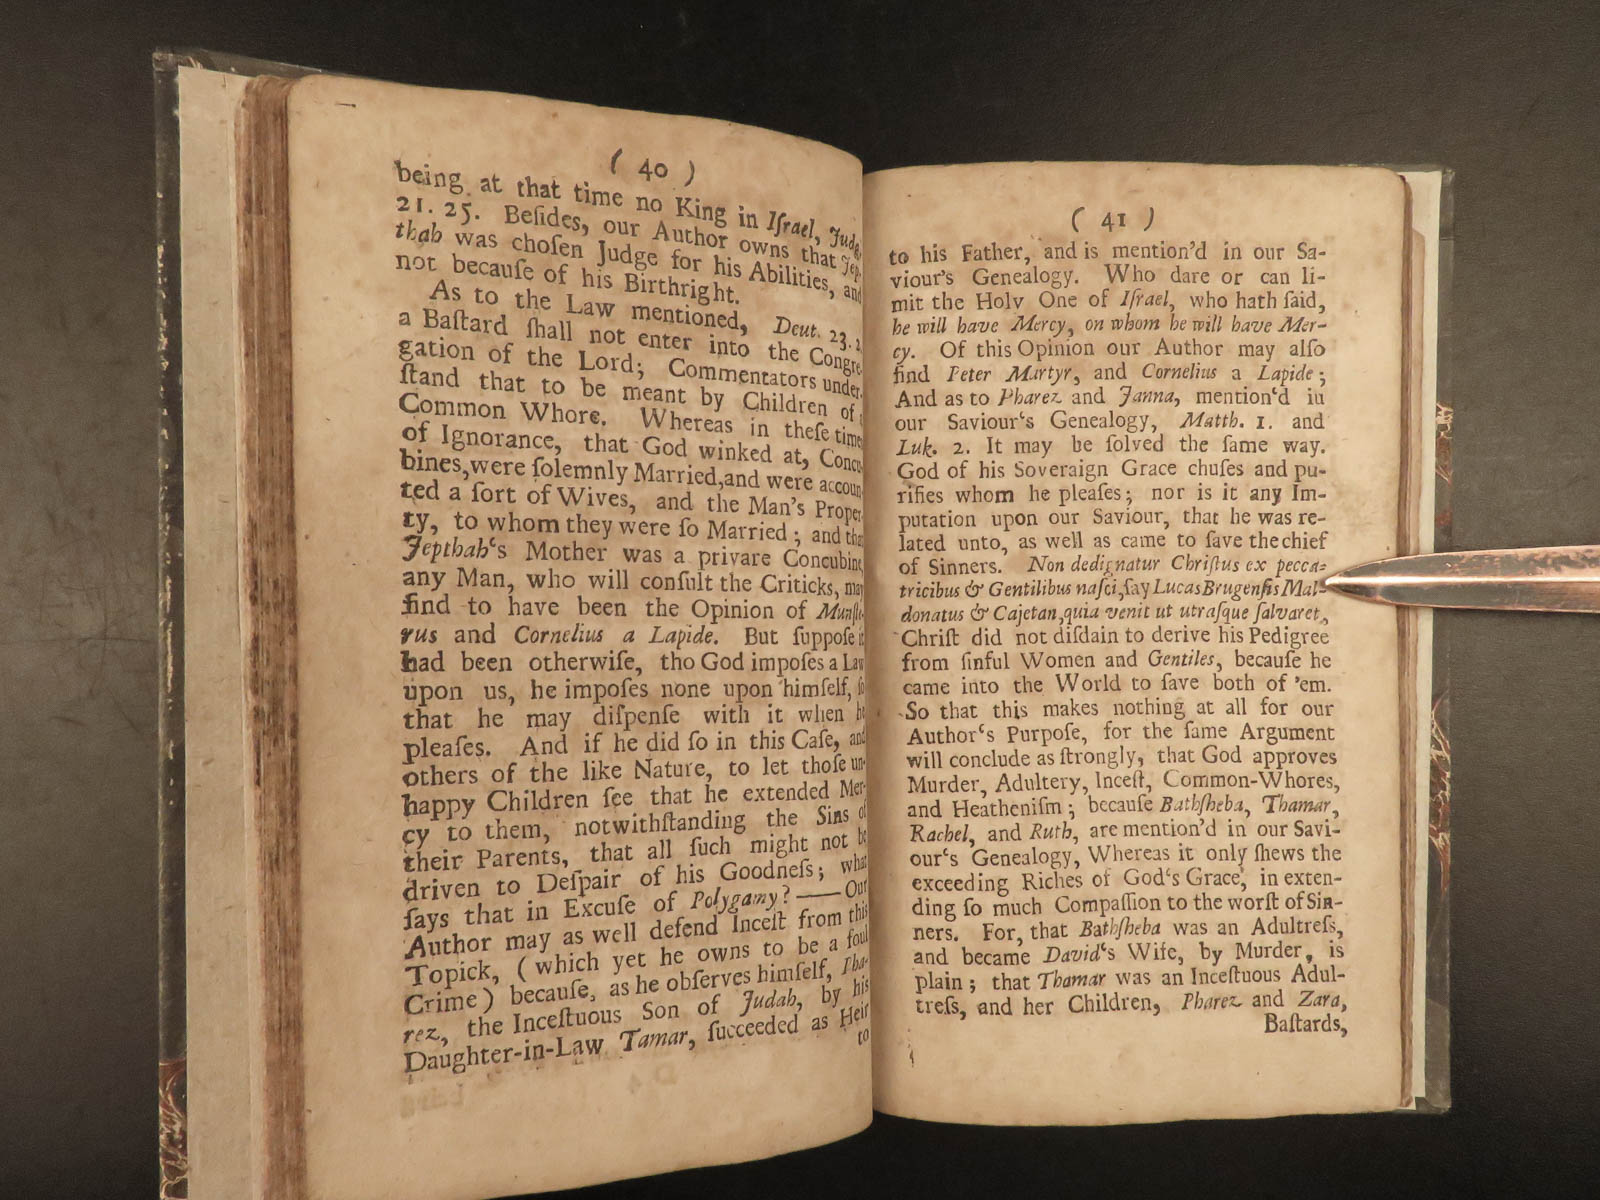 ( 40 )
being at that time no King in Iſrael, Judg.
21. 25. Beſides, our Author owns that Jep-
thah was choſen Judge for his Abilities, and
not becauſe of his Birthright.
As to the Law mentioned, Deut. 23. 2.
a Baſtard ſhall not enter into the Congre-
gation of the Lord; Commentators under-
ſtand that to be meant by Children of a
Common Whore. Whereas in theſe times
of Ignorance, that God winked at, Concu-
bines,were ſolemnly Married,and were accoun-
ted a ſort of Wives, and the Man's Proper-
ty, to whom they were ſo Married; and that
Jepthah‘s Mother was a private Concubine,
any Man, who will conſult the Criticks, may
find to have been the Opinion of Munſte-
rus and Cornelius a Lapide. But ſuppoſe it
had been otherwiſe, tho God impoſes a Law
upon us, he impoſes none upon himſelf, ſo
that he may diſpenſe with it when he
pleaſes. And if he did ſo in this Caſe, and
others of the like Nature, to let thoſe un-
happy Children ſee that he extended Mer-
cy to them, notwithſtanding the Sins of
their Parents, that all ſuch might not be
driven to Deſpair of his Goodneſs; what
ſays that in Excuſe of Polygamy? —— Our
Author may as well defend Inceſt from this
Topick, (which yet he owns to be a foul
Crime) becauſe, as he obſerves himſelf, Pha-
rez, the Inceſtuous Son of Judah, by his
Daughter-in-Law Tamar, ſucceeded as Heir
to
( 41 )
to his Father, and is mention'd in our Sa-
viour's Genealogy. Who dare or can li-
mit the Holy One of Iſrael, who hath ſaid,
he will have Mercy, on whom he will have Mer-
cy. Of this Opinion our Author may alſo
find Peter Martyr, and Cornelius a Lapide;
And as to Pharez and Janna, mention‘d in
our Saviour‘s Genealogy, Matth. 1. and
Luk. 2. It may be ſolved the ſame way.
God of his Soveraign Grace chuſes and pu-
rifies whom he pleaſes; nor is it any Im-
putation upon our Saviour, that he was re-
lated unto, as well as came to ſave the chief
of Sinners. Non dedignatur Chriſtus ex pecca-
tricibus & Gentilibus naſci,ſay Lucas Brugenſis Mal-
donatus & Cajetan,quia venit ut utraſque ſalvaret,
Chriſt did not diſdain to derive his Pedigree
from ſinful Women and Gentiles, becauſe he
came into the World to ſave both of 'em.
So that this makes nothing at all for our
Author‘s Purpoſe, for the ſame Argument
will conclude as ſtrongly, that God approves
Murder, Adultery, Inceſt, Common-Whores,
and Heatheniſm; becauſe Bathſheba, Thamar,
Rachel, and Ruth, are mention'd in our Savi-
our‘s Genealogy, Whereas it only ſhews the
exceeding Riches of God‘s Grace, in exten-
ding ſo much Compaſſion to the worſt of Sin-
ners. For, that Bathſheba was an Adultreſs,
and became David‘s Wife, by Murder, is
plain; that Thamar was an Inceſtuous Adul-
treſs, and her Children, Pharez and Zara,
Baſtards,